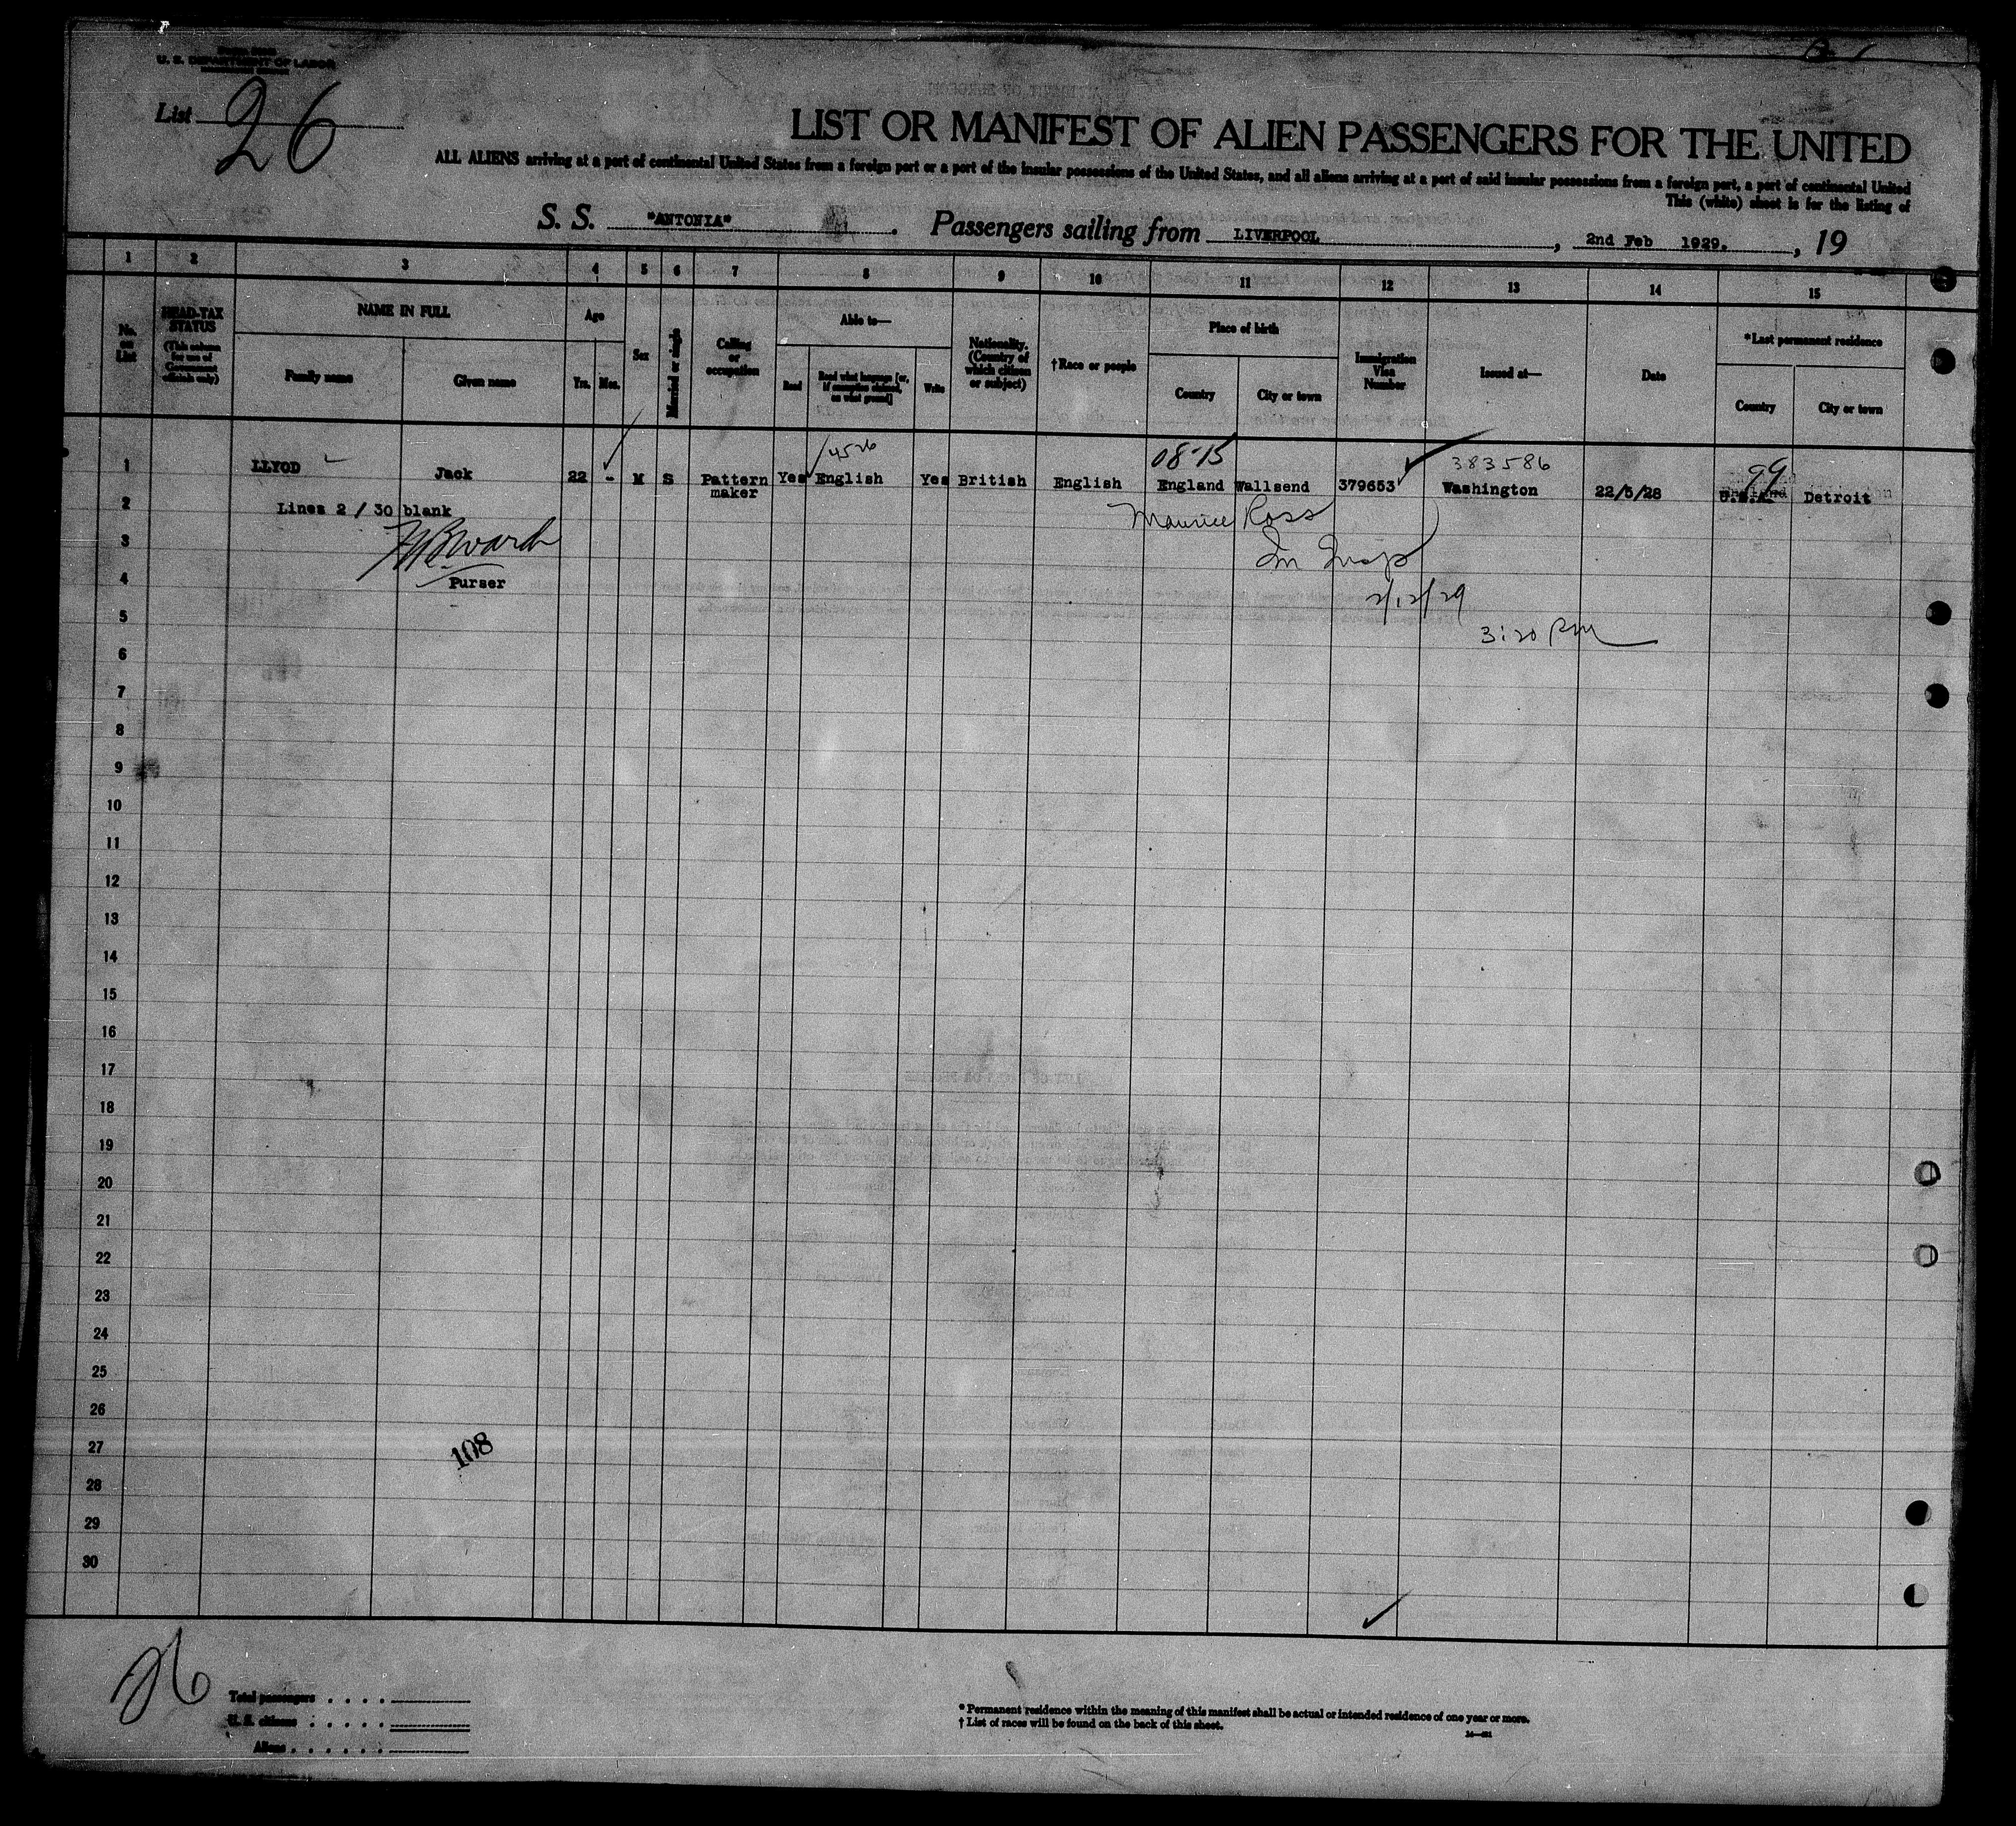 U. S. DEPARTMENT OF LABOR
List 26
LIST OR MANIFEST OF ALIEN PASSENGERS FOR THE UNITED
ALL ALIENS arriving at a port of continental United States from a foreign port or a port of the insular possessions of the United States, and all aliens arriving at a port of said insular possessions from a foreign port, a port of continental United
This (white) sheet is for the listing of
S. S. "ANTONIA" . Passengers sailing from LIVERPOOL , 2nd Feb 1929. , 19
1 2 3 4 5 6 7 8 9 10 11 12 13 14 15
No. on List
HEAD-TAX STATUS (This column for use of Government officials only)
NAME IN FULL
Family name
Given name
Age
Yrs.
Mos.
Sex
Married or single
Calling or occupation
Able to—
Read
Read what language [or, if exemption claimed, on what ground]
Write
Nationality. (Country of which citizen or subject)
†Race or people
Place of birth
Country
City or town
Immigration Visa Number
Issued at—
Date
*Last permanent residence
Country
City or town
4526 08-15 383586 99
1 LLYOD Jack 22 - M S Pattern maker Yes English Yes British English England Wallsend 379653 Washington 22/5/28 U.S.A. Detroit
2 Lines 2 / 30 blank
Maurice Ross
3
Im Insp
4 Purser
2/12/29
5
3:20 PM
6
7
8
9
10
11
12
13
14
15
16
17
18
19
20
21
22
23
24
25
26
27
108
28
29
30
26
Total passengers
U. S. citizens
Aliens
* Permanent residence within the meaning of this manifest shall be actual or intended residence of one year or more.
† List of races will be found on the back of this sheet.